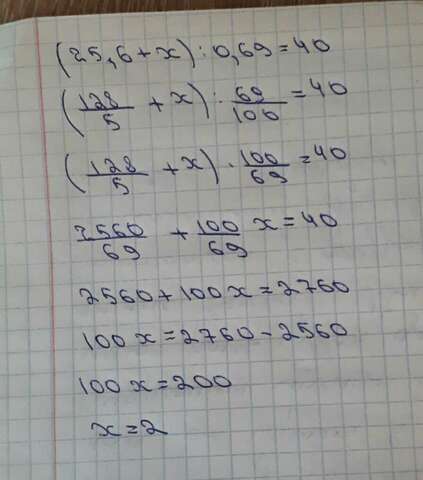 (25,6+x):0,69=40
(128/5 + x) : 69/100 = 40
(128/5 + x) · 100/69 = 40
2560/69 + 100/69 x = 40
2560+100x=2760
100x=2760-2560
100x=200
x=2